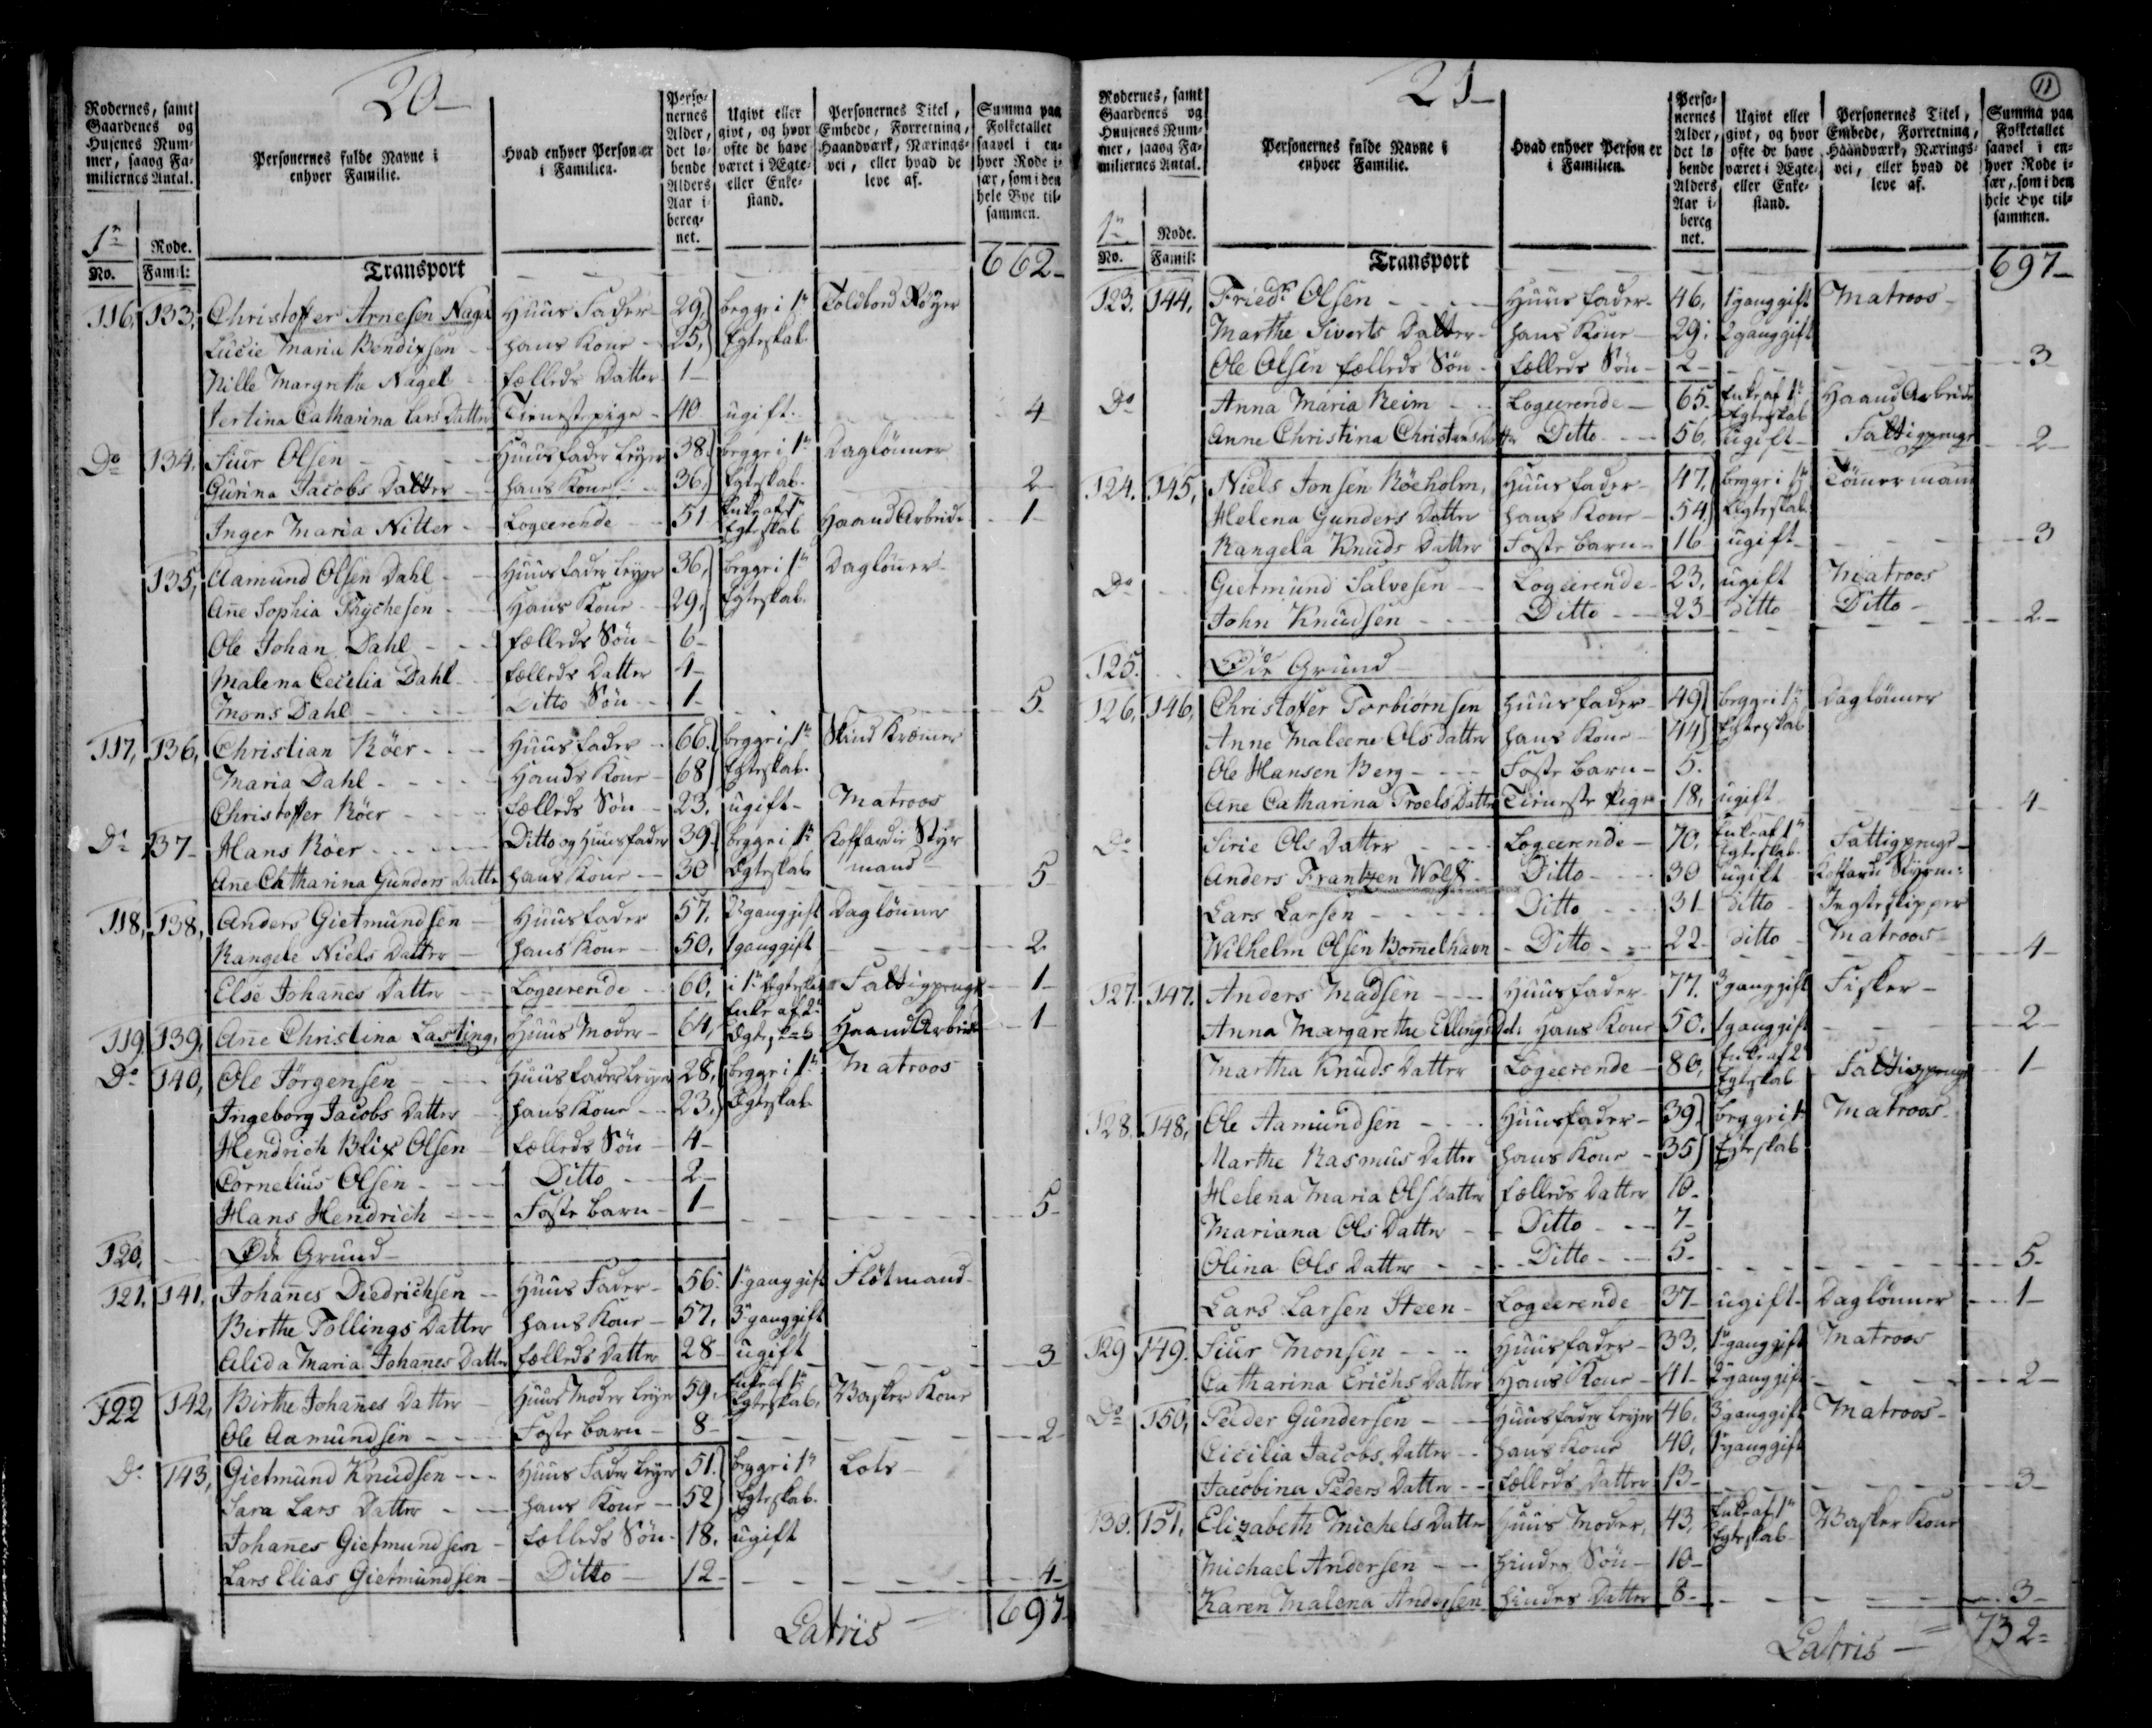 20
Rodernes, samt Gaardenes og Husenes Nummer, saavog Familiernes Antal.
Personernes fulde Navne i enhver Familie.
Hvad enhver Person er i Familien.
Personernes Alder, det løbende Alders Aar ibereg-net.
Ugivt eller givt, og hvor ofte de have været i Ægte- eller Enke-stand.
Personernes Titel, Embede, Forretning, Haandværk, Nærings-vei, eller hvad de leve af.
Summa paa Folketallet saavel i enhver Rode især, som i den hele Bye tilsammen.
1ste Rode.
No. Famil:
Transport 662
116. 133. Christoffer Arnesen Nagel Huus Fader 29 begge i 1te Toldbod Røyer
Lucie Maria Bendixsen hans Kone 25 Egteskab
Nille Margrethe Nagel fælleds Datter 1
Bertina Catharina Lars Datter Tieneste pige 40 ugift 4
Do 134. Siur Olsen Huusfader leyer 38 begge i 1te Daglønner
Gurina Jacobs Datter hans Kone 36 Egteskab 2
Inger Maria Nitter Logeerende 51 Enke af 1te Egteskab Haand Arbeide 1
135. Aamund Olsen Dahl Huusfader leyer 36 begge i 1te Daglønner
Ane Sophia Thychesen Hans Kone 29 Egteskab
Ole Johan Dahl fælleds Søn 6
Malena Cecilia Dahl fælleds Datter 4
Mons Dahl Ditto Søn 1 5
117. 136. Christian Röer Huus fader 66 begge i 1te Skind Kræmer
Maria Dahl Hands Kone 68 Egteskab
Christoffer Röer fælleds Søn 23 ugift Matroos
Do 137 Hans Röer Ditto og Huusfader 39 begge i 1te Koffardie Styr
Ane Chatharina Gunders Datter hans Kone 30 Egteskab mand 5
118. 138. Anders Gietmundsen Huusfader 57 2 gang gift Daglønner
Rangele Niels Datter hans Kone 50 1 gang gift 2
Else Johanes Datter Logeerende 60 i 1te Egteskab Fattigpenge 1
119. 139. Ane Christina Lasting Huus Moder 64 Enke af 2te Egteskab Haand Arbeide 1
Do 140. Ole Jörgensen Huusfader leyer 28 begge i 1te Matroos
Ingeborg Jacobs Datter hans Kone 23 Egteskab
Hendrich Blix Olsen fælleds Søn 4
Cornelius Olsen Ditto 2
Hans Hendrich Foster barn 1 5
120. Øde Grund
121. 141. Johanes Diedrichsen Huus Fader 56 1 gang gift Flötmand
Birthe Tollings Datter hans Kone 57 3 gang gift
Alida Maria Johanes Datter fælleds Datter 28 ugift 3
122 142. Birthe Johanes Datter Huus Moder leyer 59 Enke af 1te Egteskab Vasker Kone
Ole Aamundsen Foster barn 8 2
Do 143. Gietmund Knudsen Huus Fader leyer 51 begge i 1te Lots
Sara Lars Datter hans Kone 52 Egteskab
Johanes Gietmundsen fælleds Søn 18 ugift
Lars Elias Gietmundsen Ditto 12 4
Latris 697
21
11
Rodernes, samt Gaardenes og Huusenes Nummer, saavog Familiernes Antal.
Personernes fulde Navne i enhver Familie.
Hvad enhver Person er i Familien.
Personernes Alder, det løbende Alders Aar ibereg net.
Ugivt eller givt, og hvor ofte de have været i Ægte- eller Enke-stand.
Personernes Titel, Embede, Forretning, Haandværk, Nærings-vei, eller hvad de leve af.
Summa paa Folketallet saavel i enhver Rode især, som i den hele Bye tilsammen.
1ste Rode.
No. Famil:
Transport 697
123. 144. Friedr Olsen Huus fader 46 1 gang gift Matroos
Marthe Siverts Datter hans Kone 29 2 gang gift
Ole Olsen fælleds Søn fælleds Søn 2 3
Do Anna Maria Reim Logeerende 65 Enke af 1te Egteskab Haand Arbeide
Anne Christina Christensdatter Ditto 56 ugift Fattigpenge 2
124. 145. Niels Jonsen Röeholm Huus fader 47 begge i 1te Tömmermand
Helena Gunders Datter hans Kone 54 Egteskab
Rangela Knuds Datter Foster barn 16 ugift 3
Do Gietmund Salvesen Logeerende 23 ugift Matroos
John Knudsen Ditto 23 Ditto Ditto 2
125. Øde Grund
126. 146. Christoffer Torbiørnsen huusfader 49 begge i 1te Daglønner
Anne Maleene Ols datter hans Kone 44 Egteskab
Ole Hansen Berg Foster barn 5
Ane Catharina Troels Datter Tieneste Pige 18 ugift 4
Do Sirie Ols Datter Logeerende 70 Enke af 1te Egteskab Fattigpenge
Anders Frantzen Wolff Ditto 30 ugift Koffardi Styrm:
Lars Larsen Ditto 31 Ditto Jegteskipper
Wilhelm Olsen Bomelhavn Ditto 22 ditto Matroos 4
127. 147. Anders Madsen Huusfader 77 3 gang gift Fisker
Anna Margarethe Ellings Dat: Hans Kone 50 1 gang gift 2
Martha Knuds Datter Logeerende 80 Enke af 2te Egteskab Fattigpenge 1
128. 148. Ole Aamundsen Huusfader 39 begge i 1te Matroos
Marthe Rasmus Datter hans Kone 35 Egteskab
Helena Maria Ols Datter fælleds Datter 10
Mariana Ols Datter Ditto 7
Olina Ols Datter Ditto 5 5
Lars Larsen Steen Logeerende 37 ugift Daglønner 1
129 149. Siur Monsen Huusfader 33 1 gang gift Matroos
Catharina Erichs Datter Hans Kone 41 2 gang gift 2
Do 150. Peder Gundersen Huusfader leyer 46 3 gang gift Matroos
Cicilia Jacobs Datter hans Kone 40 1 gang gift
Jacobina Peders Datter fælleds Datter 13 3
130. 151. Elizabeth Michels Datter Huus Moder 43 Enke af 1te Egteskab Vasker Kone
Michael Andersen hindes Søn 10
Karen Malena Andersen hindes Datter 8 3
Latris 732